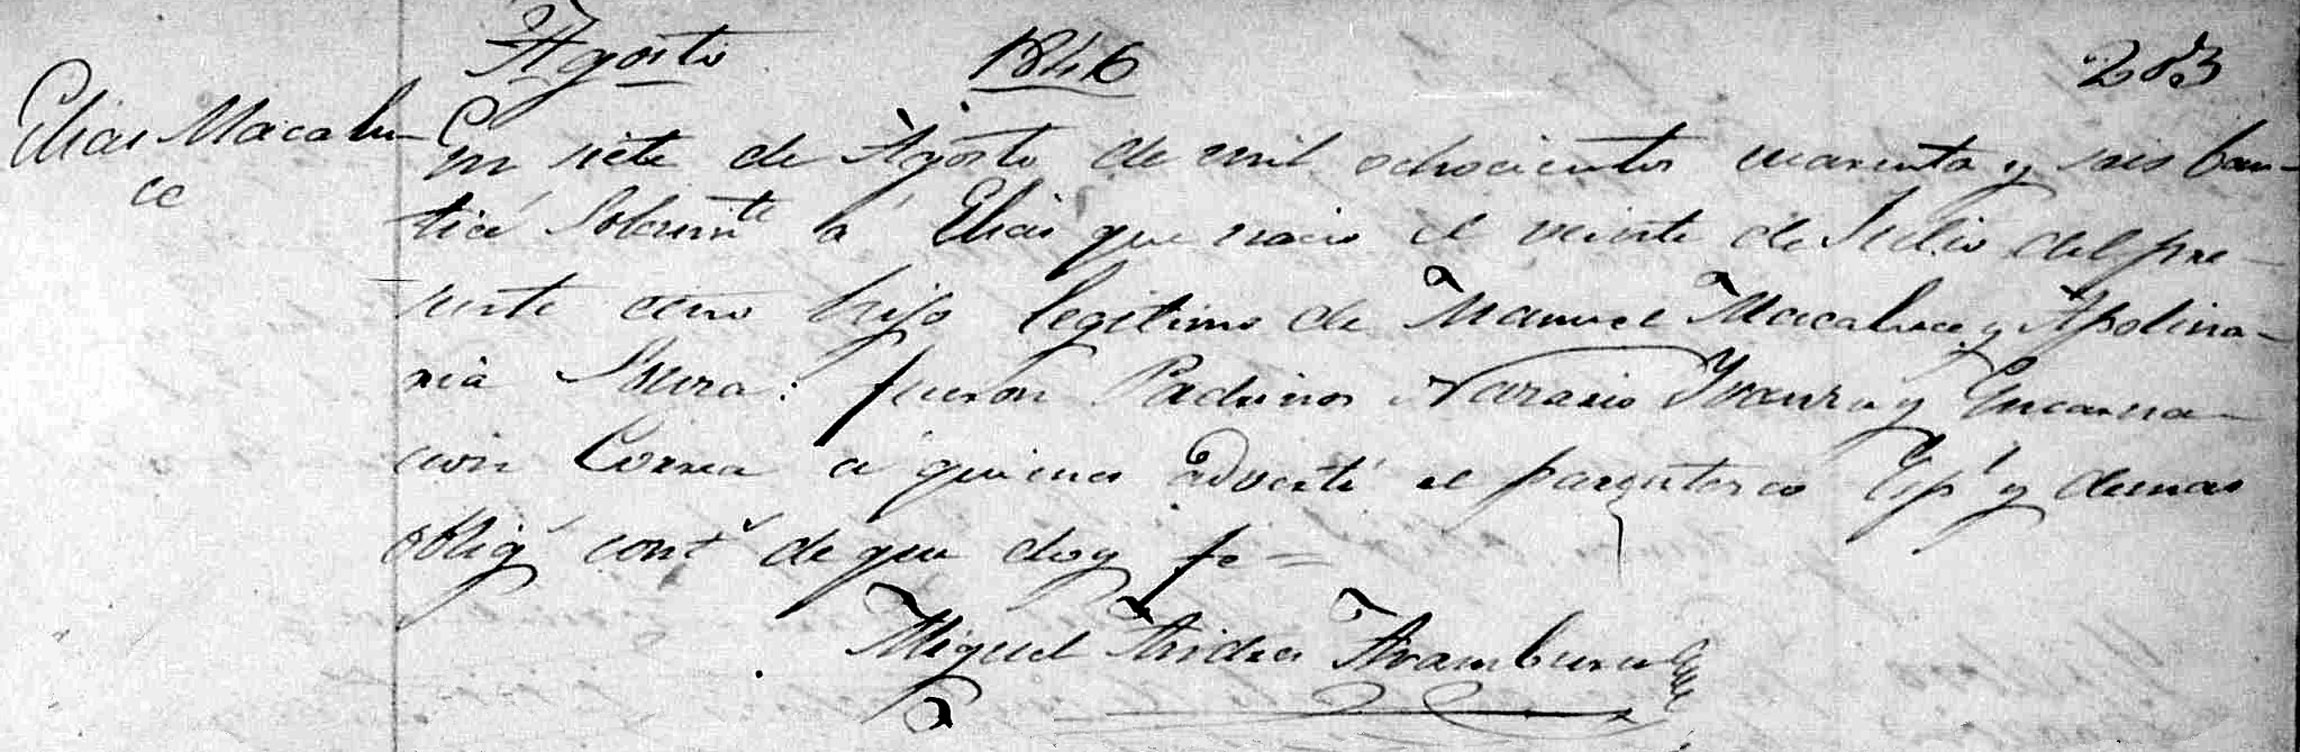 Agosto 1846 283
Elias Macalu-
ce
En siete de Agosto de mil ochocientos cuarenta y seis bau-
ticé Solemnte a Elias que nacio el veinte de Julio del pre-
sente año hijo legitimo de Manuel Macaluce y Apolina-
ria Soura: fueron Padrinos Narario y Encarna-
cion Correa a quienes adverti el parentesco Espl y demas
oblig cont de que doy fe =
Miguel Andres Aramburu